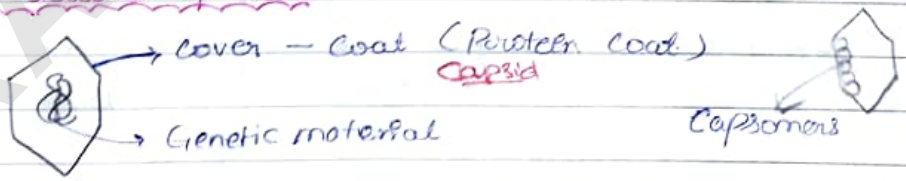 Cover - Coat (Protein Coat)
Capsid
Genetic material
Capsomers